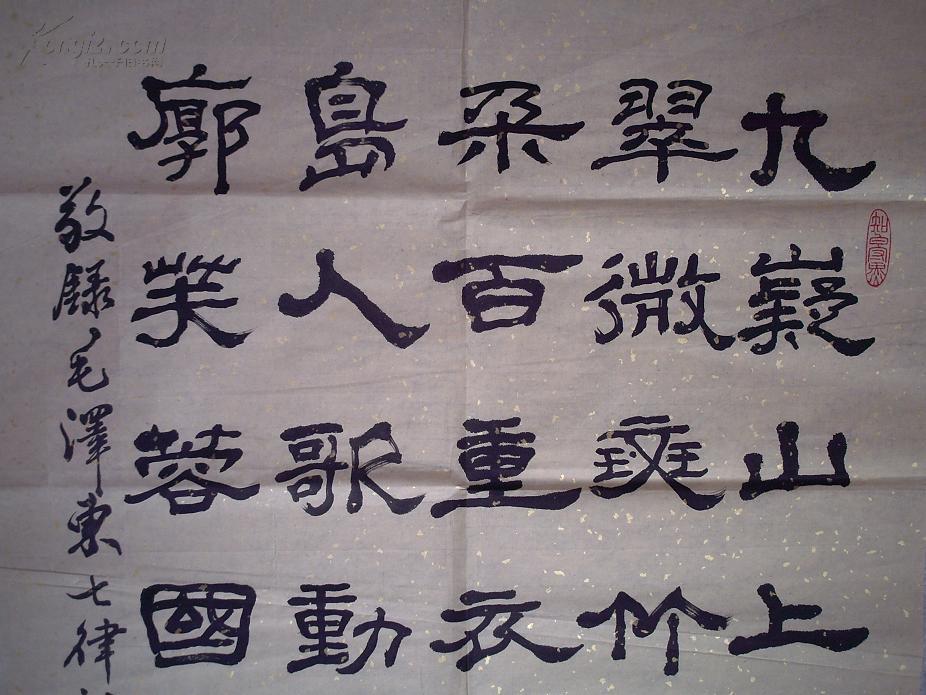 九嶷山上
翠微斑竹
朵百重衣
島人歌動
廓芙蓉國
敬録毛澤東七律
Kongfz.com
孔夫子旧书网